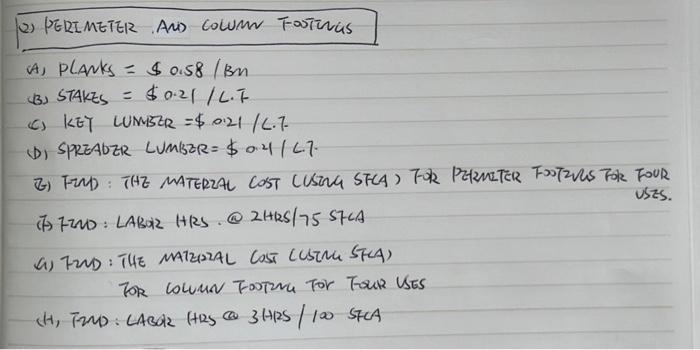 (2) PERIMETER AND COLUMN FOOTINGS
(A) PLANKS = $ 0.58 / Bm
(B) STAKES = $ 0.21 / L.F
(C) KEY LUMBER = $ 0.21 / L.F.
(D) SPREADER LUMBER = $ 0.41 L.F.
E) FIND : THE MATERIAL COST (USING SFCA) FOR PERIMITER FOOTINGS FOR FOUR
USES.
(F) FIND : LABOR HRS. @ 2HRS/75 SFCA
G) FIND : THE MATERIAL COST (USING SFCA)
FOR COLUMN FOOTING FOR FOUR USES
(H) FIND : LABOR HRS @ 3 HRS / 100 SFCA